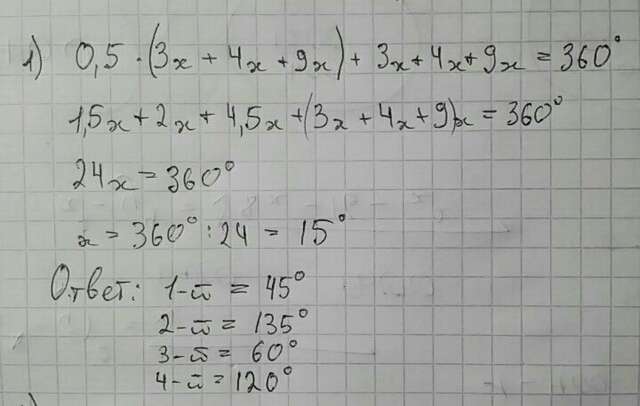 1) 0,5 · (3x + 4x + 9x) + 3x + 4x + 9x = 360°
1,5x + 2x + 4,5x + (3x + 4x + 9)x = 360°
24x = 360°
x = 360° : 24 = 15°
Ответ: 1-й = 45°
2-й = 135°
3-й = 60°
4-й = 120°